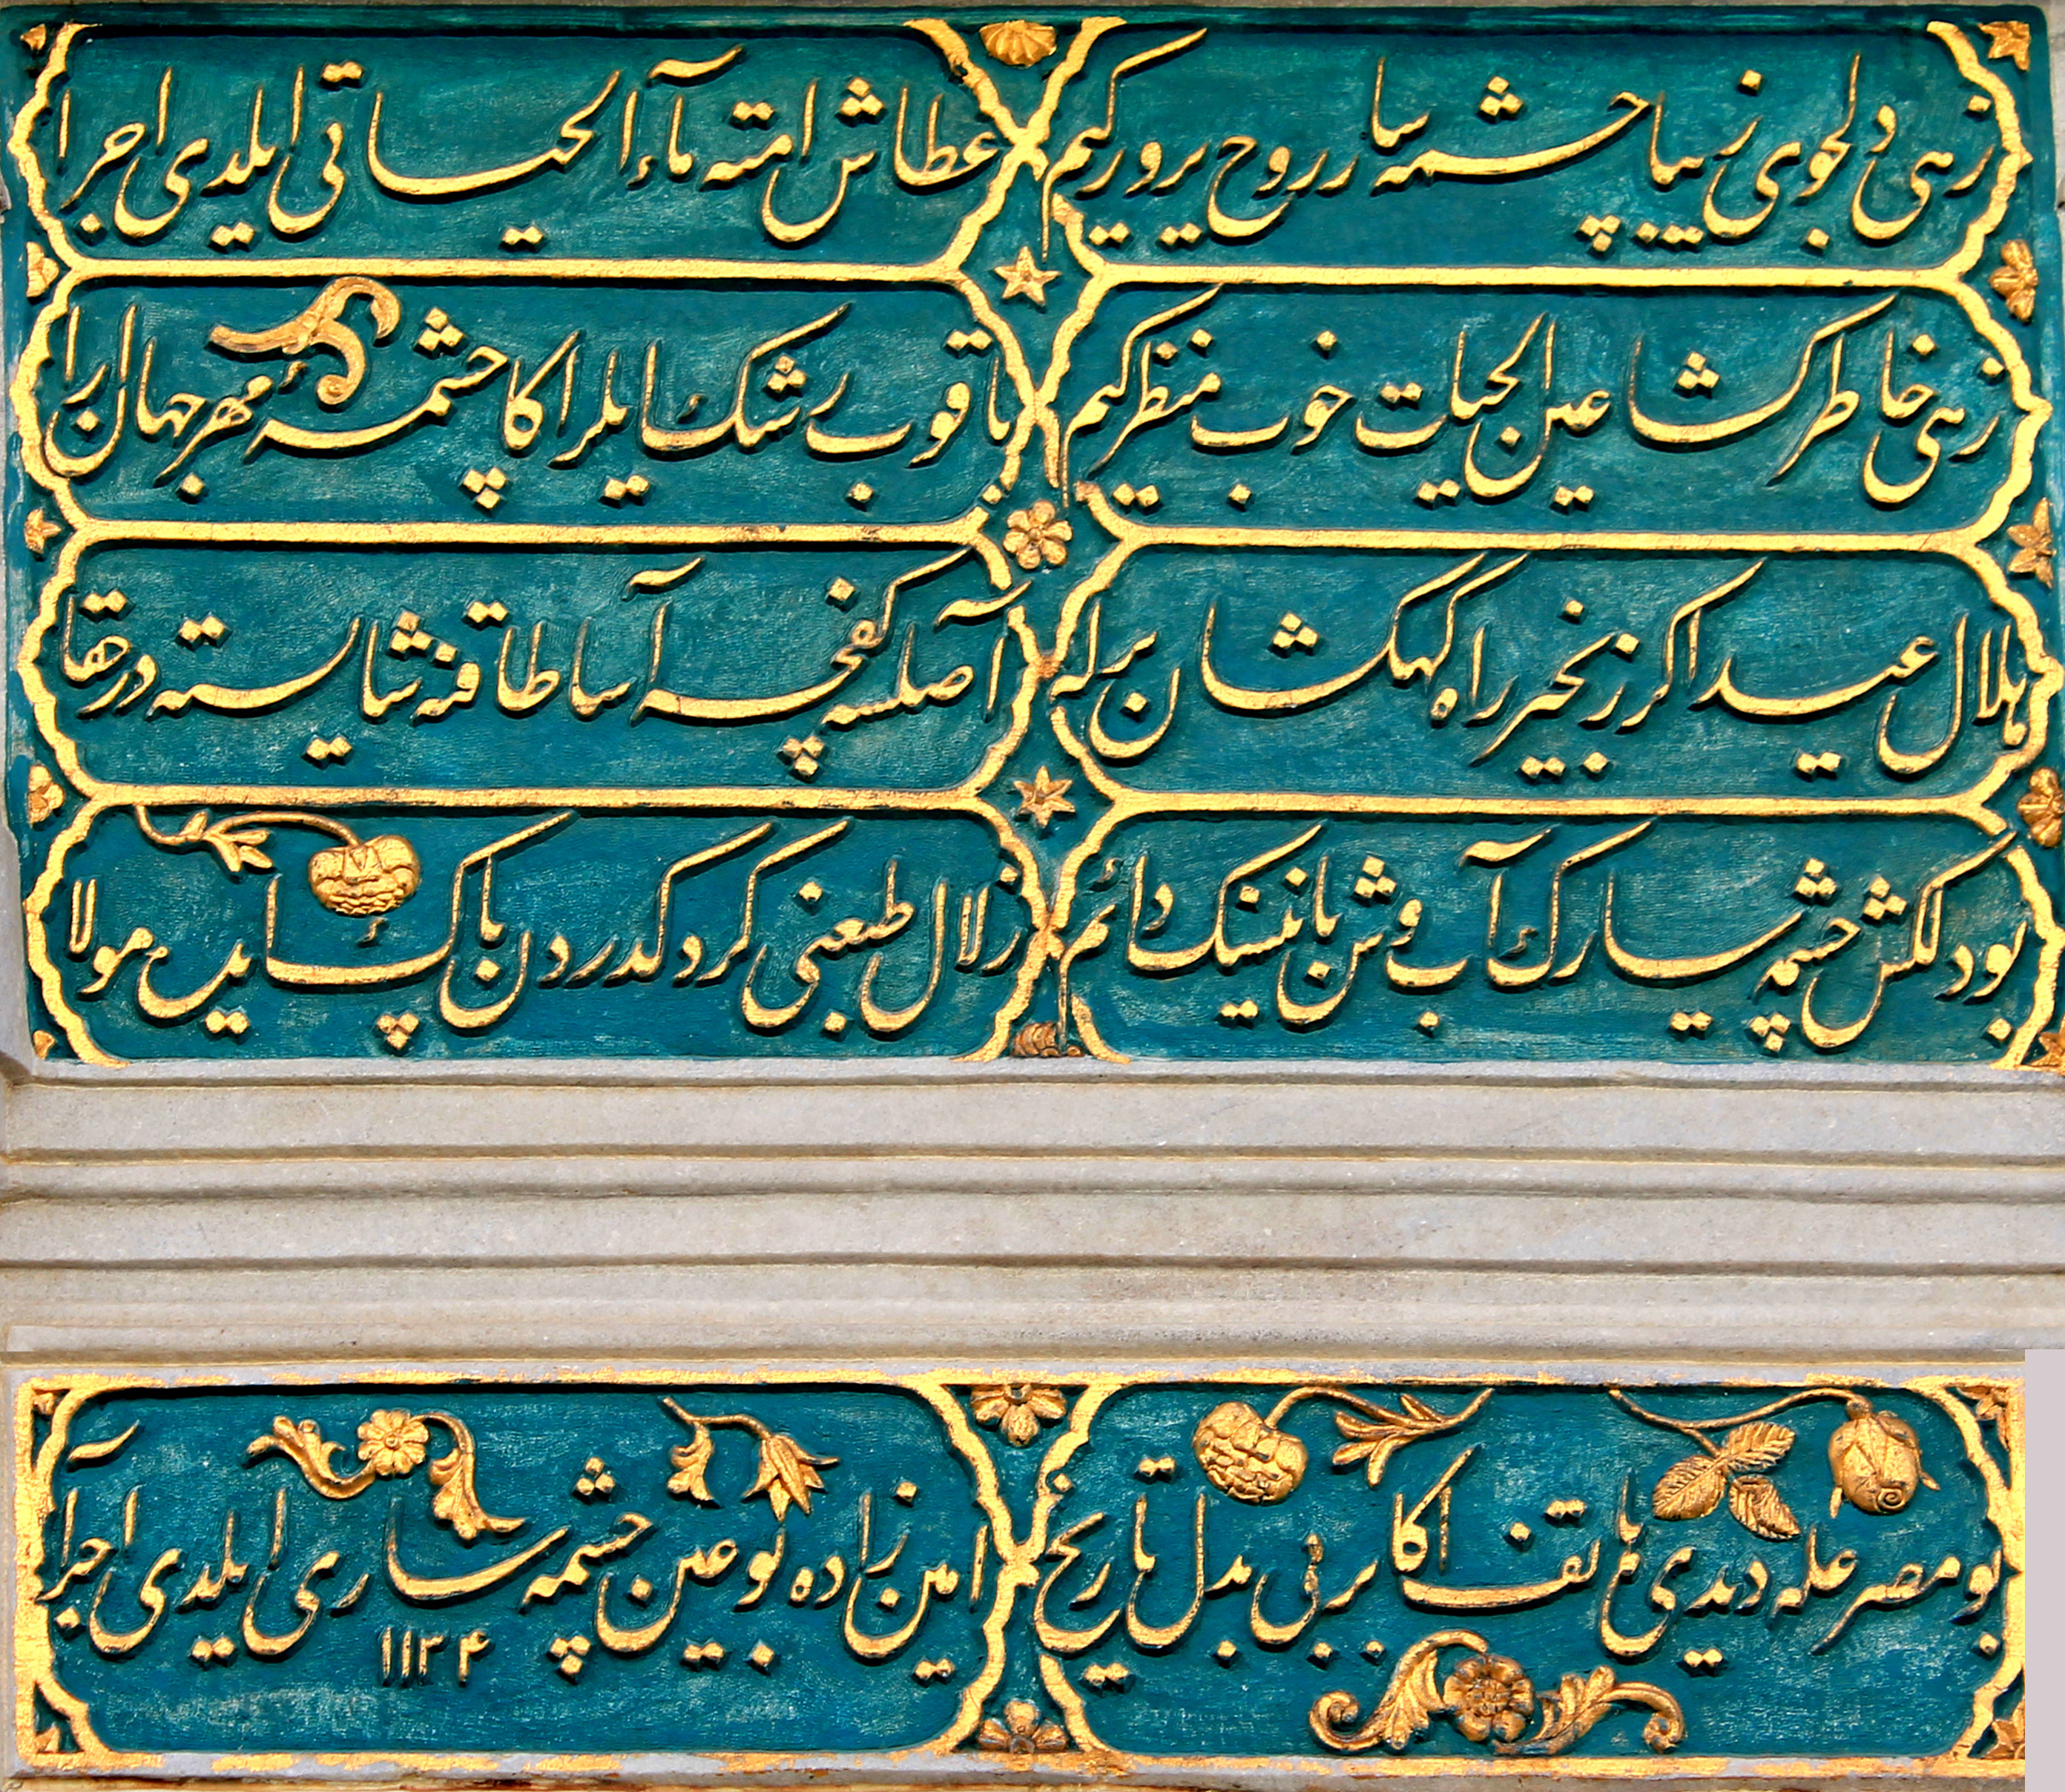 زهی دلجوی زیبا چشمه سار روح پرور کیم
عطاش امته مآء الحیاتی ایلدی اجرا
زهی خاطر کشا عین الحیات خوب منظر کیم
باقوب رشک ایلر اکا چشمهٔ مهر جهان ارا
هلال عید اکر زنجیر راه کهکشان برله
آصلسه کفچه آسا طاقنه شایسته در حقا
بو دلکش چشمهٔ مبارک آب وشن باننیسک دائم
زلال طبعنی کرد کدردن پاک ایده مولا
بو مصرعله دیدی هاتف اکا بر بی بدل تاریخ
امین زاده بو عین چشمه ساری ایلدی اجرا
۱۱۳۴